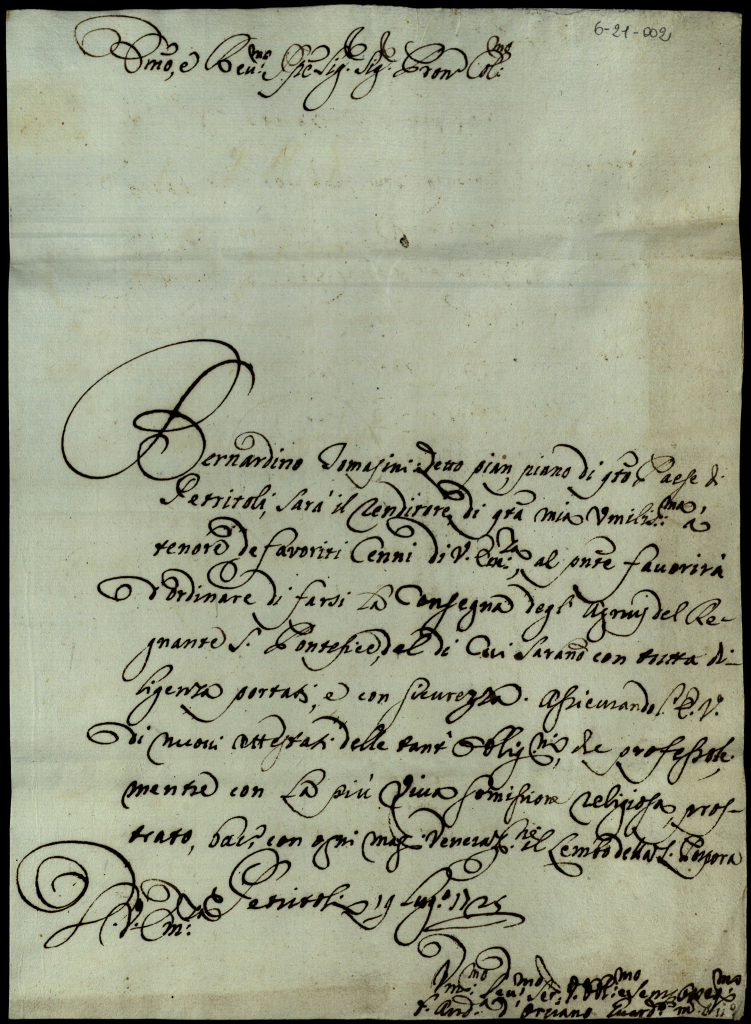 6-21-002
Emo, e Reu.mo Ppe Sig. Sig. Pron Col.mo
Bernardino Tomasini detto pian piano di qto Paese di
Petritoli, sarà il Renditore di qta mia Vmiliss.ma, a
tenore de favoriti Cenni di V. Em.za, al pnte favorirà
d'ordinare di farsi la Consegna degl' Agnus del Re-
gnante S. Pontefice, del di Cui sarano con tutta di-
ligenza portati, e con sicurezza. Assicurando l' E. V.
di nuovi attestati delle tant' Oblig.ni, che professole,
mentre con la più Viva somissione religiosa, pros-
trato, bacio con ogni mag. Veneraz.ne il Lembo della S. Porpora
D. V. Em.za Petritoli 19 Lug.o 1725
Vm.mo Deu.mo Ser. Obbl.mo
F. And. d' Orciano Guard.